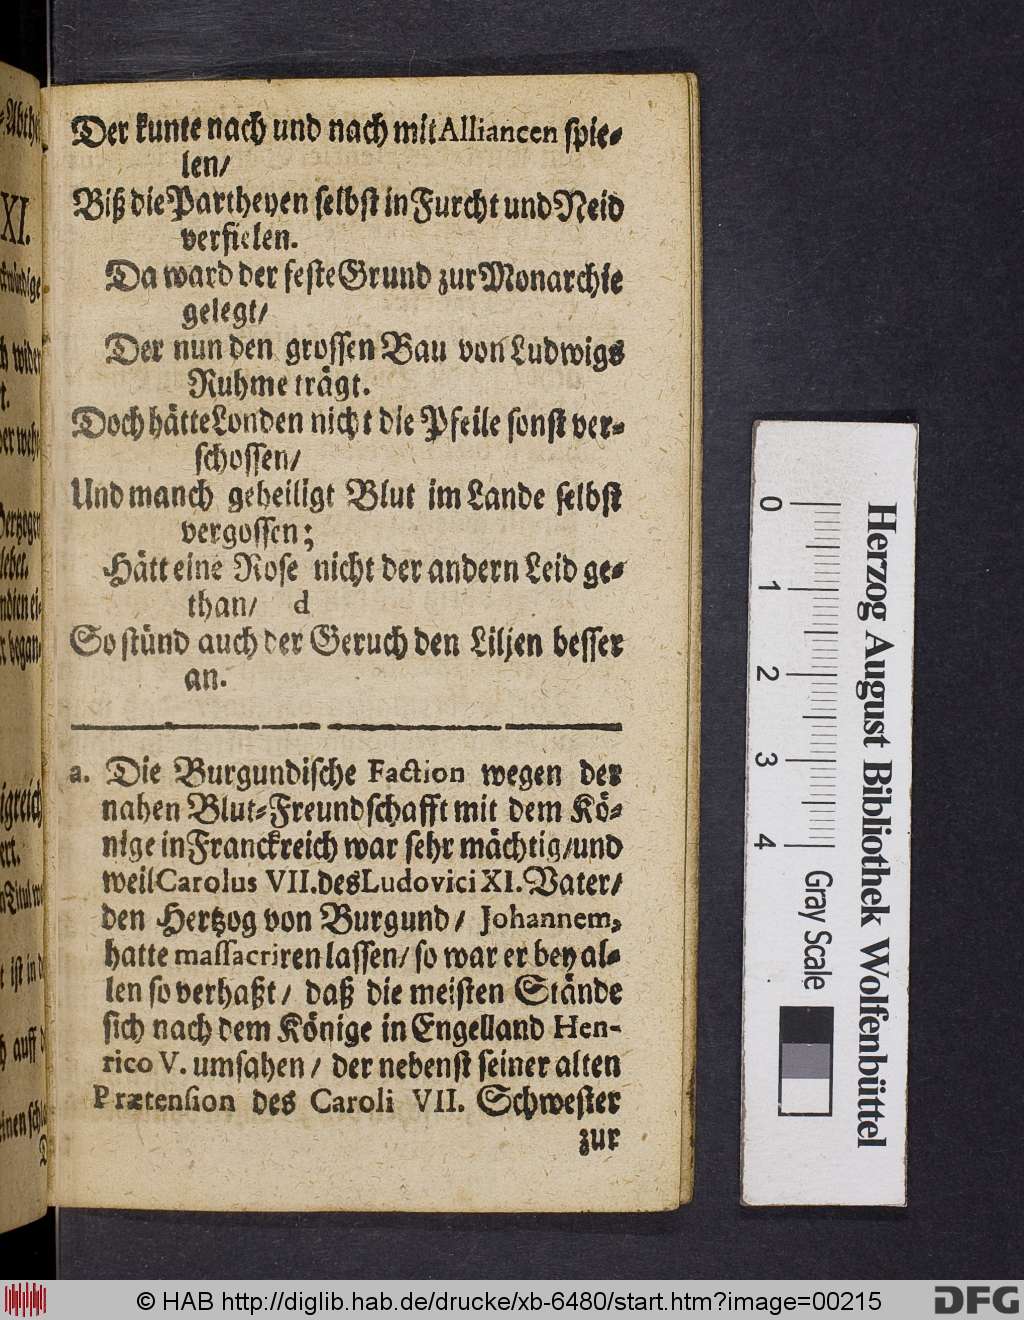 Der kunte nach und nach mit Alliancen spie-
len/
Biß die Partheyen selbst in Furcht und Neid
verfielen.
Da ward der feste Grund zur Monarchie
gelegt/
Der nun den grossen Bau von Ludwigs
Ruhme trägt.
Doch hätte Londen nicht die Pfeile sonst ver-
schossen/
Und manch geheiligt Blut im Lande selbst
vergossen;
Hätt eine Rose nicht der andern Leid ge-
than/ d
So stünd auch der Geruch den Liljen besser
an.
a. Die Burgundische Faction wegen der
nahen Blut-Freundschafft mit dem Kö-
nige in Franckreich war sehr mächtig/und
weil Carolus VII. des Ludovici XI. Vater/
den Hertzog von Burgund/ Johannem,
hatte massacriren lassen/ so war er bey al-
len so verhaßt/ daß die meisten Stände
sich nach dem Könige in Engelland Hen-
rico V. umsahen/ der nebenst seiner alten
Prætension des Caroli VII. Schwester
zur
XI.
0 1 2 3 4
Gray Scale
Herzog August Bibliothek Wolfenbüttel
© HAB http://diglib.hab.de/drucke/xb-6480/start.htm?image=00215
DFG